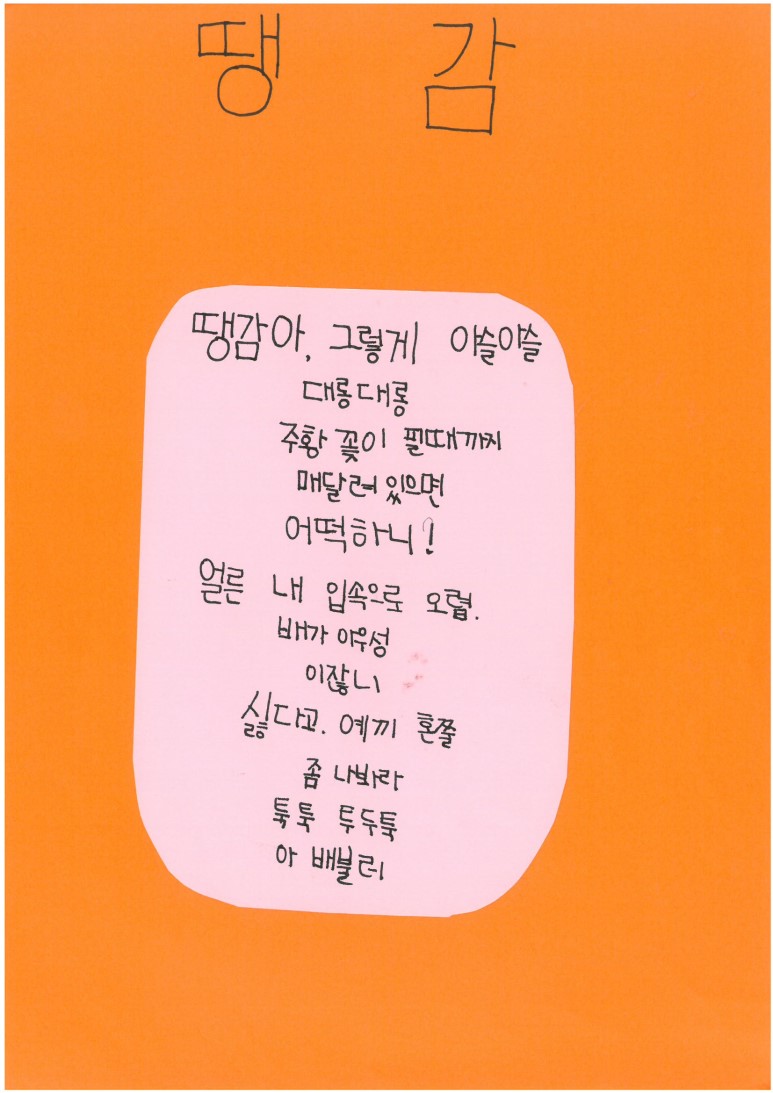 땡 감
땡감아, 그렇게 아슬아슬
대롱대롱
주황 꽃이 필때까지
매달려 있으면
어떡하니!
얼른 내 입속으로 오렴.
배가 아우성
이잖니
싫다고. 예끼 혼쭐
좀 나봐라
툭툭 투두툭
아 배불러